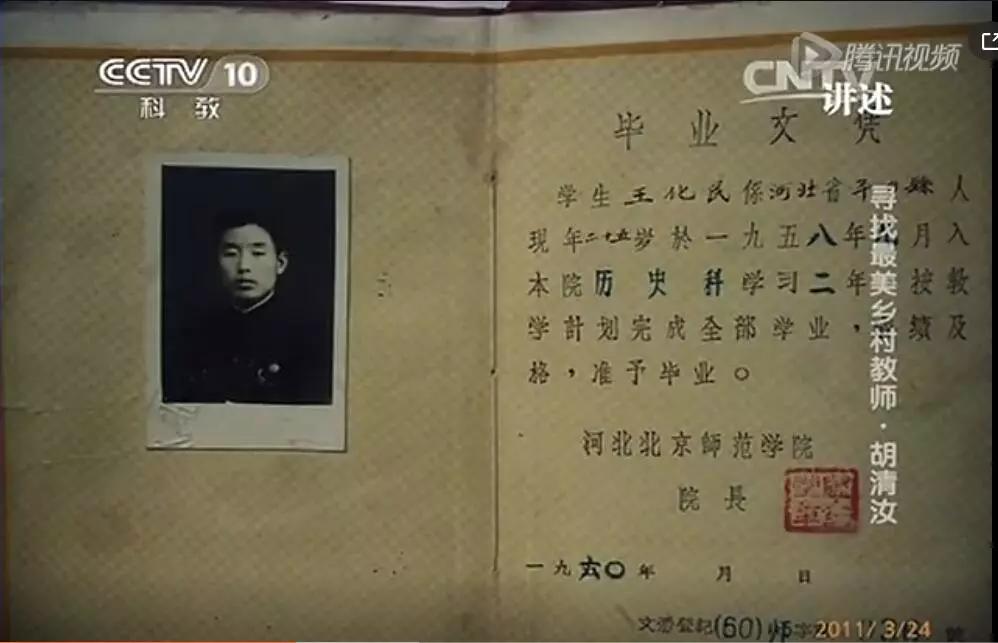 CCTV 10
科教
腾讯视频
CNTV
讲述
寻找最美乡村教师·胡清汝
毕业文凭
学生王化民係河北省平 人
現年二十五岁於一九五八年 月入
本院历史科学习二年 按教
学計划完成全部学业, 績及
格,准予毕业。
河北北京師范学院
院長
一九六〇年 月 日
文憑登記(60)师字
2011/3/24